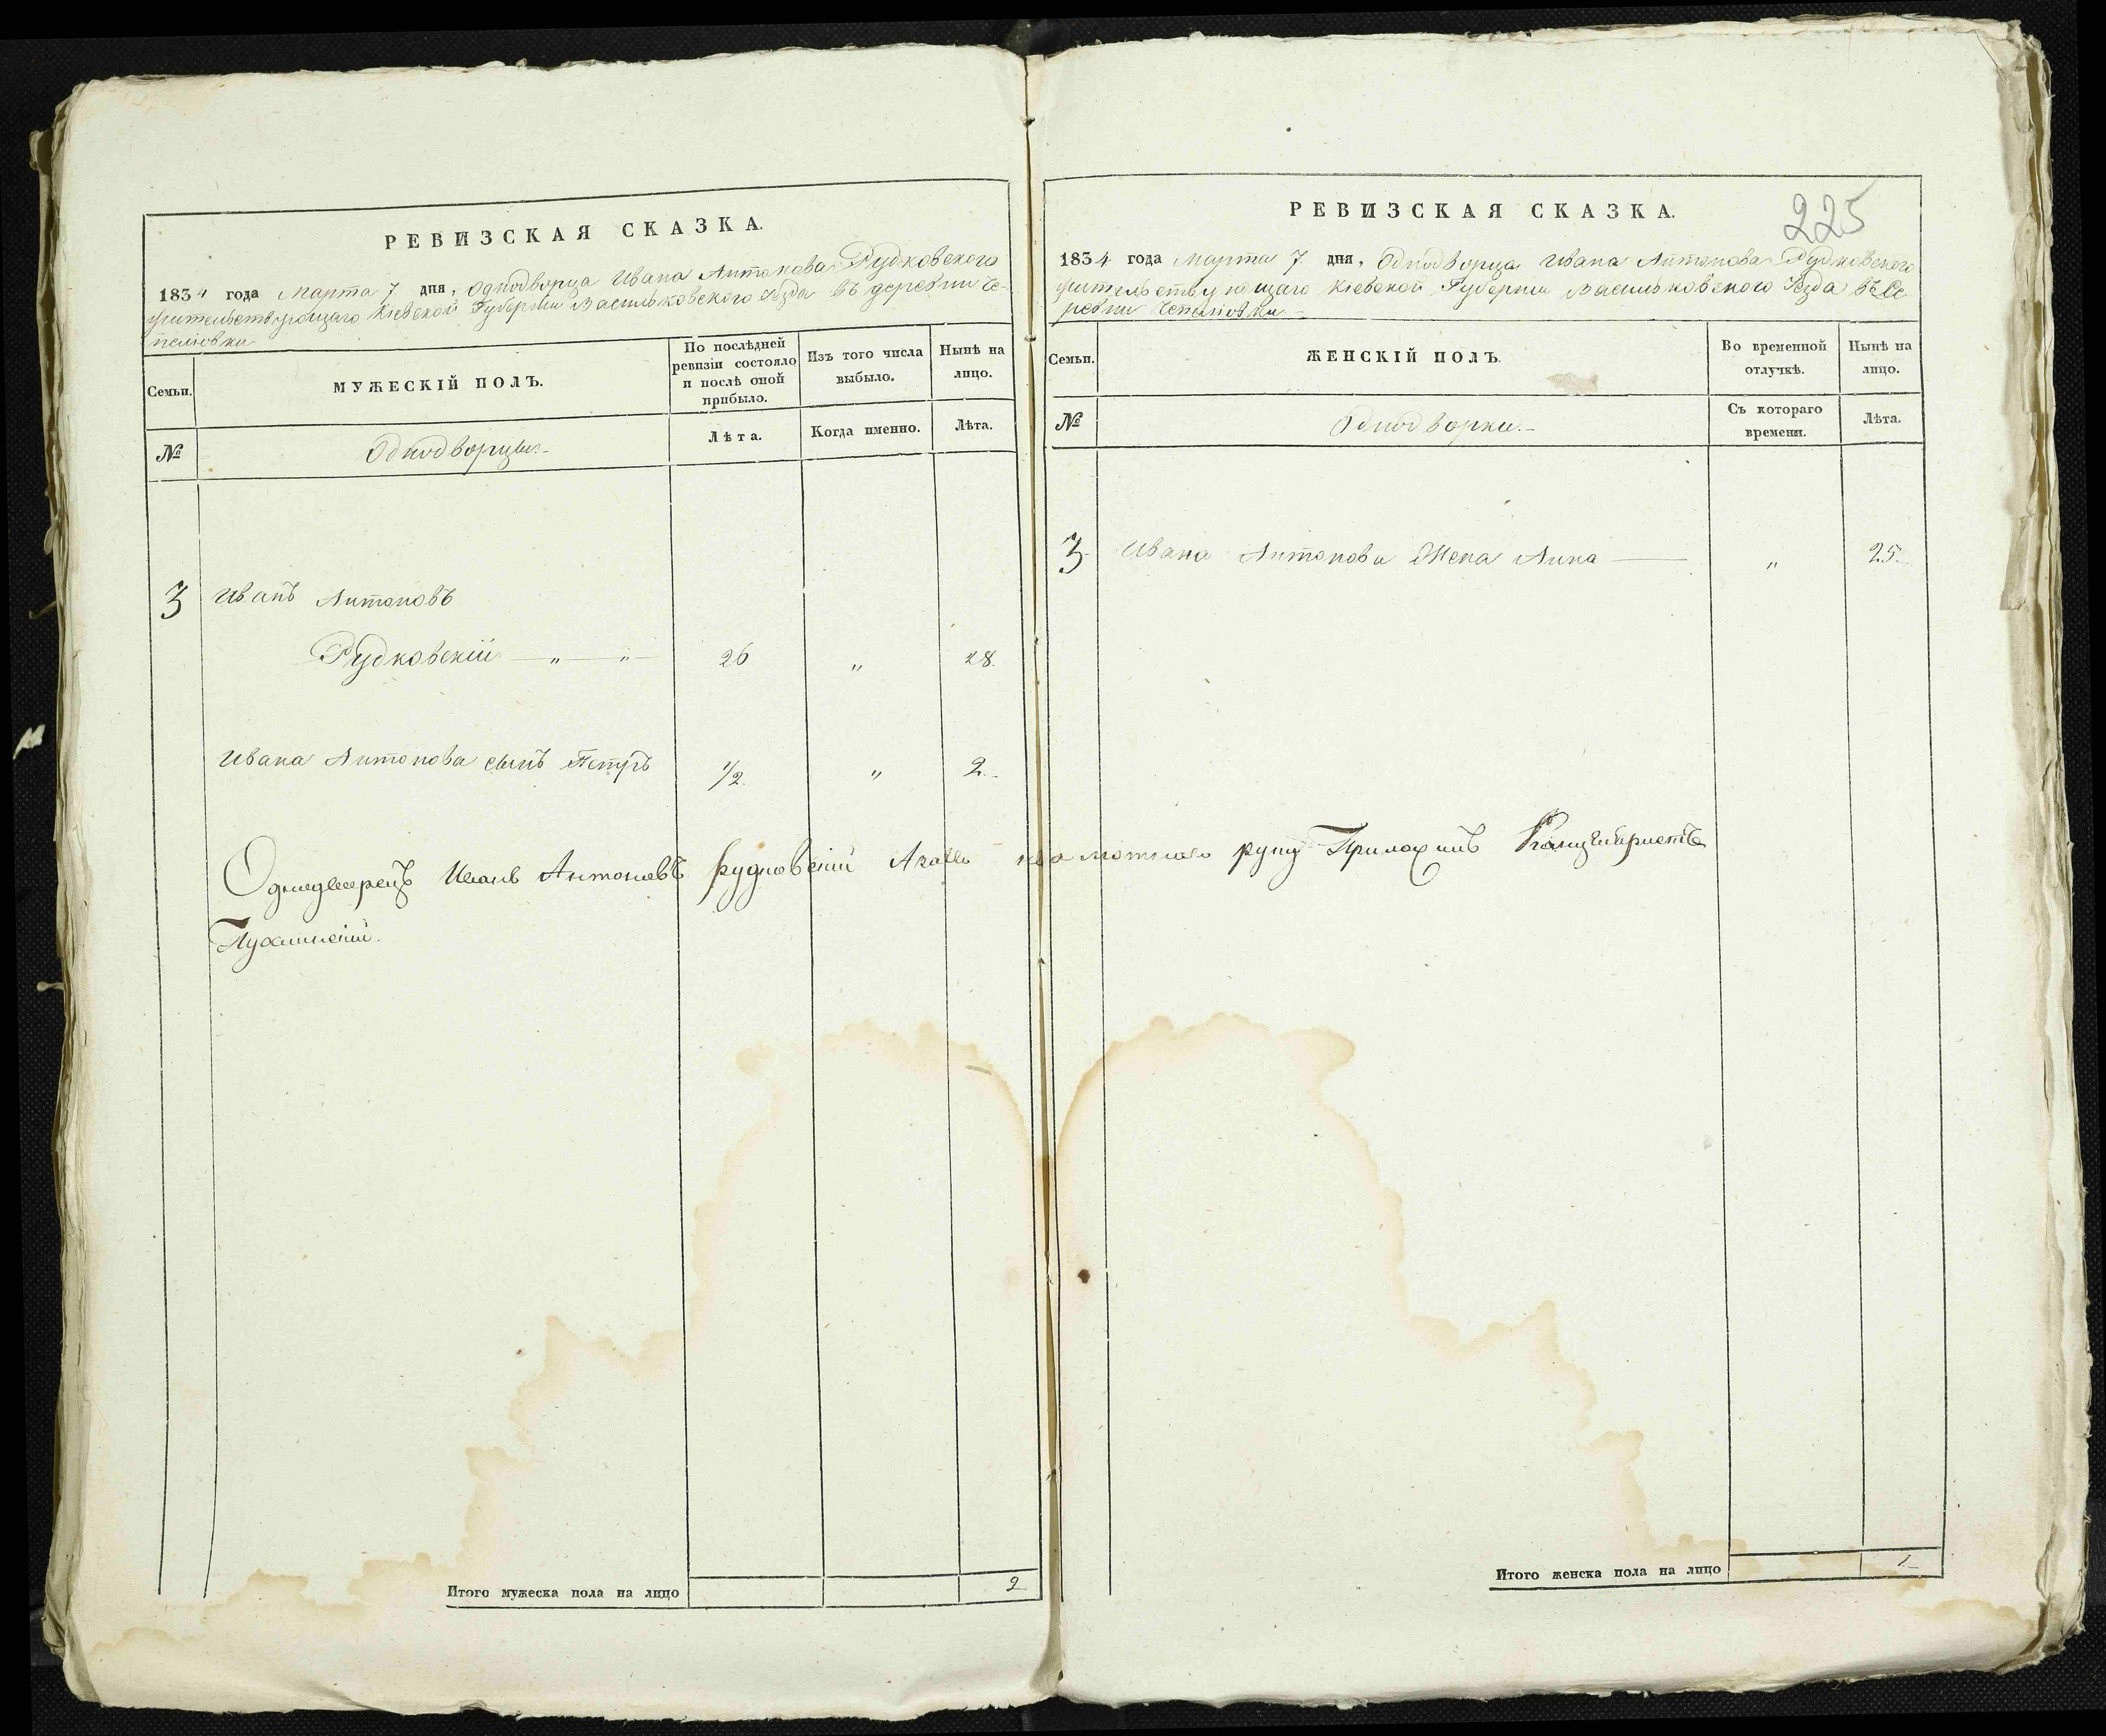 РЕВИЗСКАЯ СКАЗКА.
1834 года Марта 7 дня, Однодворца Ивана Антонова Рудковского
жительствующаго Кіевской Губерніи Васильковского уѣзда въ деревни Че-
пеліовки
Семьи.
МУЖЕСКІЙ ПОЛЪ.
По послѣдней
ревизіи состояло
и послѣ оной
прибыло.
Изъ того числа
выбыло.
Нынѣ на
лицо.
№
Однодворцы.
Лѣта.
Когда именно.
Лѣта.
3 Иванъ Антоновъ
Рудковскій — " — " — 26 " 28.
Ивана Антонова сынъ Петръ 1/2. " 2.
Однодворецъ Иванъ Антоновъ Рудковскій А за его руку Приложилъ Канцеляристъ
Итого мужеска пола на лицо 2
РЕВИЗСКАЯ СКАЗКА.
225
1834 года Марта 7 дня, Однодворца Ивана Антонова Рудковского
жительствующаго Кіевской Губерніи Васильковского Уѣзда въ де
ревни Чепеліовки
Семьи.
ЖЕНСКІЙ ПОЛЪ.
Во временной
отлучкѣ.
Нынѣ на
лицо.
№
Однодворки.
Съ котораго
времени.
Лѣта.
3 Ивана Антонова Жена Анна — " 25.
Итого женска пола на лицо 1